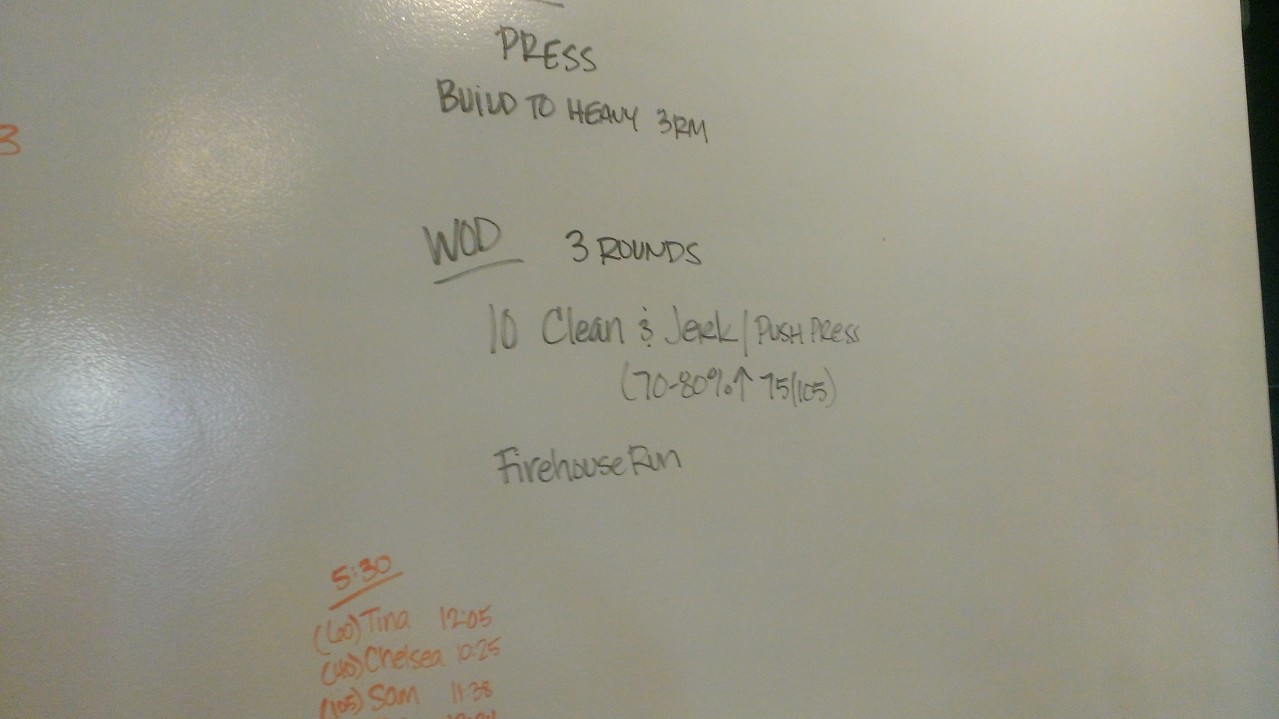 3
PRESS
BUILD TO HEAVY 3RM
WOD 3 ROUNDS
10 Clean & Jerk/PUSH PRESS
(70-80%↑ 75/105)
Firehouse Run
5:30
(60) Tina 12:05
(40) Chelsea 10:25
(105) Sam 11:38